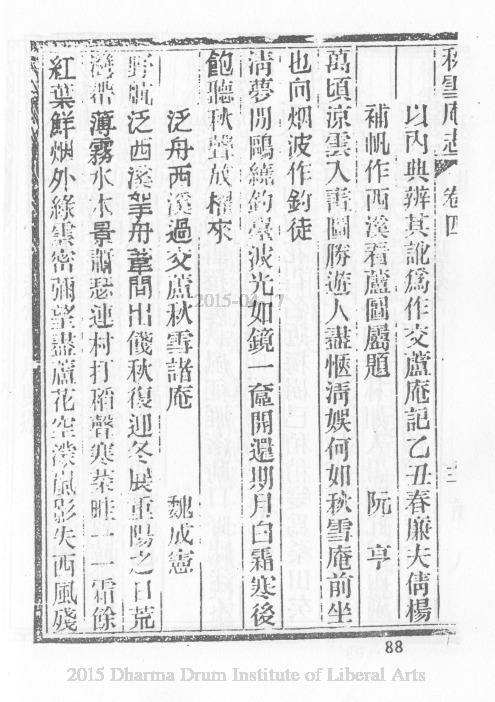 秋雪庵志 卷四
以內典辨其訛爲作交蘆庵記乙丑春廉夫倩楊
補帆作西溪看蘆圖屬題 阮亨
萬頃涼雲入畫圖勝遊人盡愜淸娛何如秋雪庵前坐
也向烟波作釣徒
淸夢閒鷗繞釣臺波光如鏡一奩開還期月白霜寒後
飽聽秋聲放櫂來
泛舟西溪過交蘆秋雪諸庵 魏成憲
野航泛西溪掌舟葦間出餞秋復迎冬展重陽之日荒
灣帶薄霧水木景蕭瑟連村打稻聲寒菜畦一一霜餘
紅葉鮮烟外綠雲密彌望盡蘆花空濛嵐影失西風殘
88
2015-04-17
2015 Dharma Drum Institute of Liberal Arts